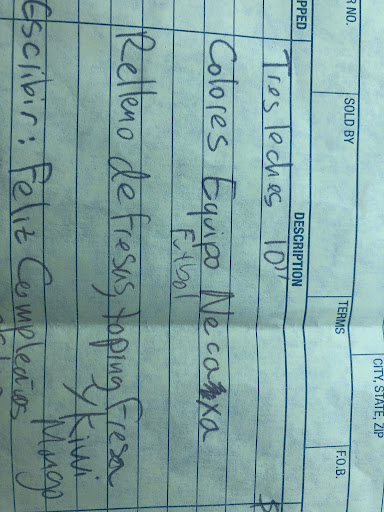 R NO.
SOLD BY
TERMS
CITY, STATE, ZIP
F.O.B.
PPED
DESCRIPTION
Tres leches 10"
$
Colores Equipo Necaxa
Futbol
Relleno de fresas, toping fresa
y Kiwi
Mango
Escribir: Feliz Cumpleaños